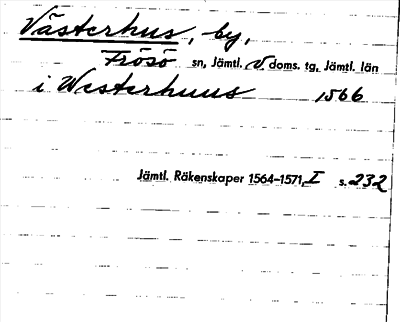 Västerhus, by,
Frösö sn, Jämtl. V. doms. tg, Jämtl. län
i Westerhuus 1566
Jämtl. Räkenskaper 1564–1571, I s. 232